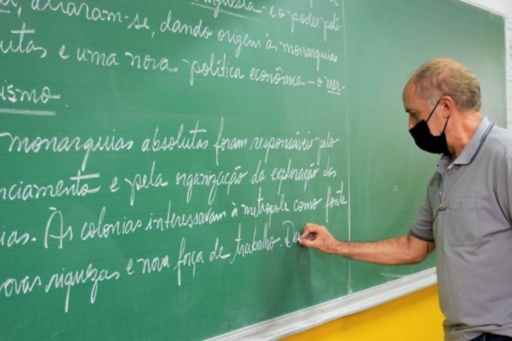 aliaram-se, dando origem às monarquias
e uma nova política econômica - o mer-
monarquias absolutas foram responsáveis pelo
e pela organização da exploração das
Às colonias interessavam à metropole como fonte
novas riquezas e nova força de trabalho. De